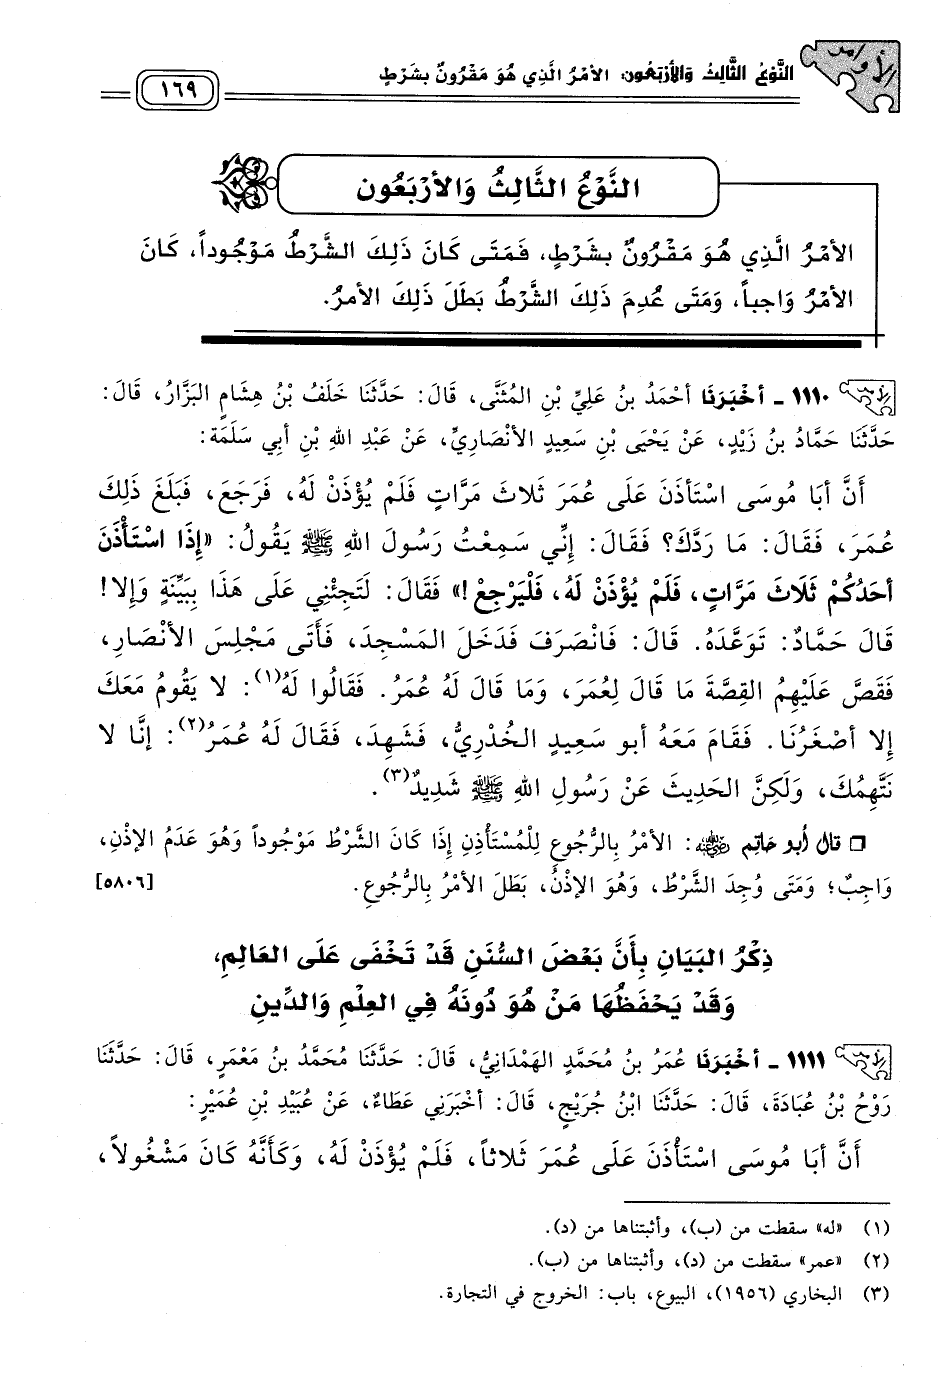 الأوامر
النَّوْعُ الثَّالِثُ وَالأَرْبَعُون: الأمْرُ الَّذِي هُوَ مَقْرُونٌ بِشَرْطٍ
١٦٩
النَّوْعُ الثَّالِثُ وَالأرْبَعُون
الأمْرُ الَّذِي هُوَ مَقْرُونٌ بِشَرْطٍ، فَمَتَى كَانَ ذَلِكَ الشَّرْطُ مَوْجُوداً، كَانَ
الأمْرُ وَاجباً، وَمَتَى عُدِمَ ذَلِكَ الشَّرْطُ بَطَلَ ذَلِكَ الأمرُ.
١١١٠ - أخْبَرَنَا أحْمَدُ بنُ عَلِيِّ بْنِ المُثَنَّى، قَالَ: حَدَّثَنَا خَلَفُ بْنُ هِشَامٍ البَزَّارُ، قَالَ:
حَدَّثَنَا حَمَّادُ بنُ زَيْدٍ، عَنْ يَحْيَى بْنِ سَعِيدٍ الأنْصَارِيِّ، عَنْ عَبْدِ اللهِ بْنِ أبي سَلَمَةَ:
أَنَّ أبَا مُوسَى اسْتَأْذَنَ عَلَى عُمَرَ ثَلَاثَ مَرَّاتٍ فَلَمْ يُؤْذَنْ لَهُ، فَرَجَعَ، فَبَلَغَ ذَلِكَ
عُمَرَ، فَقَالَ: مَا رَدَّكَ؟ فَقَالَ: إنِّي سَمِعْتُ رَسُولَ اللهِ ﷺ يَقُولُ: «إِذَا اسْتَأْذَنَ
أحَدُكُمْ ثَلَاثَ مَرَّاتٍ، فَلَمْ يُؤْذَنْ لَهُ، فَلْيَرْجِعْ!» فَقَالَ: لَتَجِئْنِي عَلَى هَذَا بِبَيِّنَةٍ وَإلا!
قَالَ حَمَّادٌ: تَوَعَّدَهُ. قَالَ: فَانْصَرَفَ فَدَخَلَ المَسْجِدَ، فَأَتَى مَجْلِسَ الأنْصَارِ،
فَقَصَّ عَلَيْهِمُ القِصَّةَ مَا قَالَ لِعُمَرَ، وَمَا قَالَ لَهُ عُمَرُ. فَقَالُوا لَهُ(١): لا يَقُومُ مَعَكَ
إلا أصْغَرُنَا. فَقَامَ مَعَهُ أبو سَعِيدٍ الخُدْرِيُّ، فَشَهِدَ، فَقَالَ لَهُ عُمَرُ(٢): إنَّا لا
نَتَّهِمُكَ، وَلَكِنَّ الحَدِيثَ عَنْ رَسُولِ اللهِ ﷺ شَدِيدٌ(٣).
❑ قال أبو حاتِم رضي الله عنه: الأمْرُ بِالرُّجُوعِ لِلْمُسْتَأْذِنِ إذَا كَانَ الشَّرْطُ مَوْجُوداً وَهُوَ عَدَمُ الإذْنِ،
وَاجِبٌ؛ وَمَتَى وُجِدَ الشَّرْطُ، وَهُوَ الإذْنُ، بَطَلَ الأمْرُ بِالرُّجُوعِ. [٥٨٠٦]
ذِكْرُ البَيَانِ بِأَنَّ بَعْضَ السُّنَنِ قَدْ تَخْفَى عَلَى العَالِمِ،
وَقَدْ يَحْفَظُهَا مَنْ هُوَ دُونَهُ فِي العِلْمِ وَالدِّينِ
١١١١ - أخْبَرَنَا عُمَرُ بنُ مُحَمَّدٍ الهَمْدَانِيُّ، قَالَ: حَدَّثَنَا مُحَمَّدُ بنُ مَعْمَرٍ، قَالَ: حَدَّثَنَا
رَوْحُ بْنُ عُبَادَةَ، قَالَ: حَدَّثَنَا ابْنُ جُرَيْجٍ، قَالَ: أخْبَرَنِي عَطَاءٌ، عَنْ عُبَيْدِ بْنِ عُمَيْرٍ:
أَنَّ أبَا مُوسَى اسْتَأْذَنَ عَلَى عُمَرَ ثَلاثاً، فَلَمْ يُؤْذَنْ لَهُ، وَكَأَنَّهُ كَانَ مَشْغُولاً،
(١) «له» سقطت من (ب)، وأثبتناها من (د).
(٢) «عمر» سقطت من (د)، وأثبتناها من (ب).
(٣) البخاري (١٩٥٦)، البيوع، باب: الخروج في التجارة.